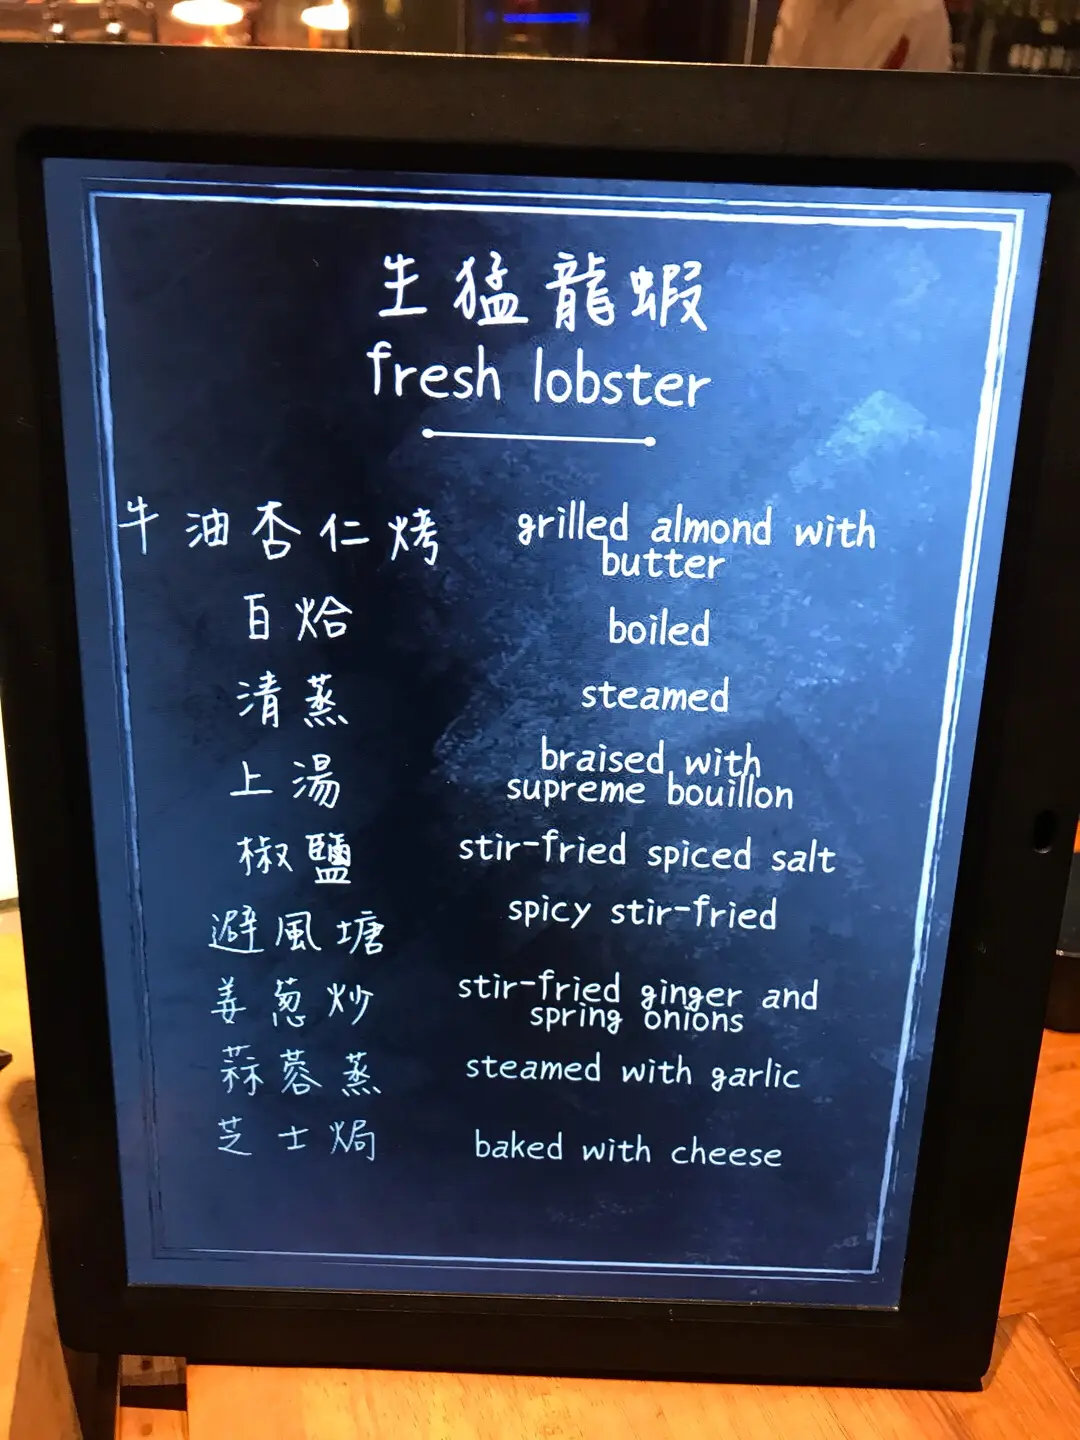 生猛龍蝦
fresh lobster
牛油杏仁烤 grilled almond with
butter
白烚 boiled
清蒸 steamed
上湯 braised with
supreme bouillon
椒鹽 stir-fried spiced salt
避風塘 spicy stir-fried
姜葱炒 stir-fried ginger and
spring onions
蒜蓉蒸 steamed with garlic
芝士焗 baked with cheese